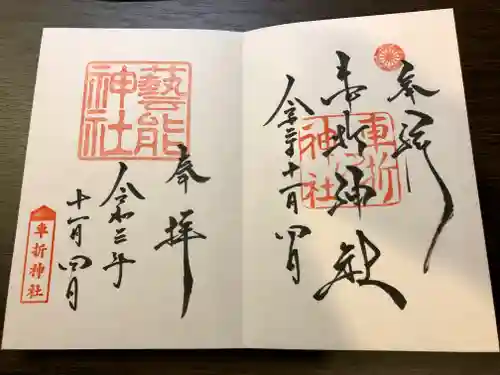 奉拝
車折神社
車折
神社
十一月四日
奉拝
藝能
神社
令和
十一月四日
車折神社